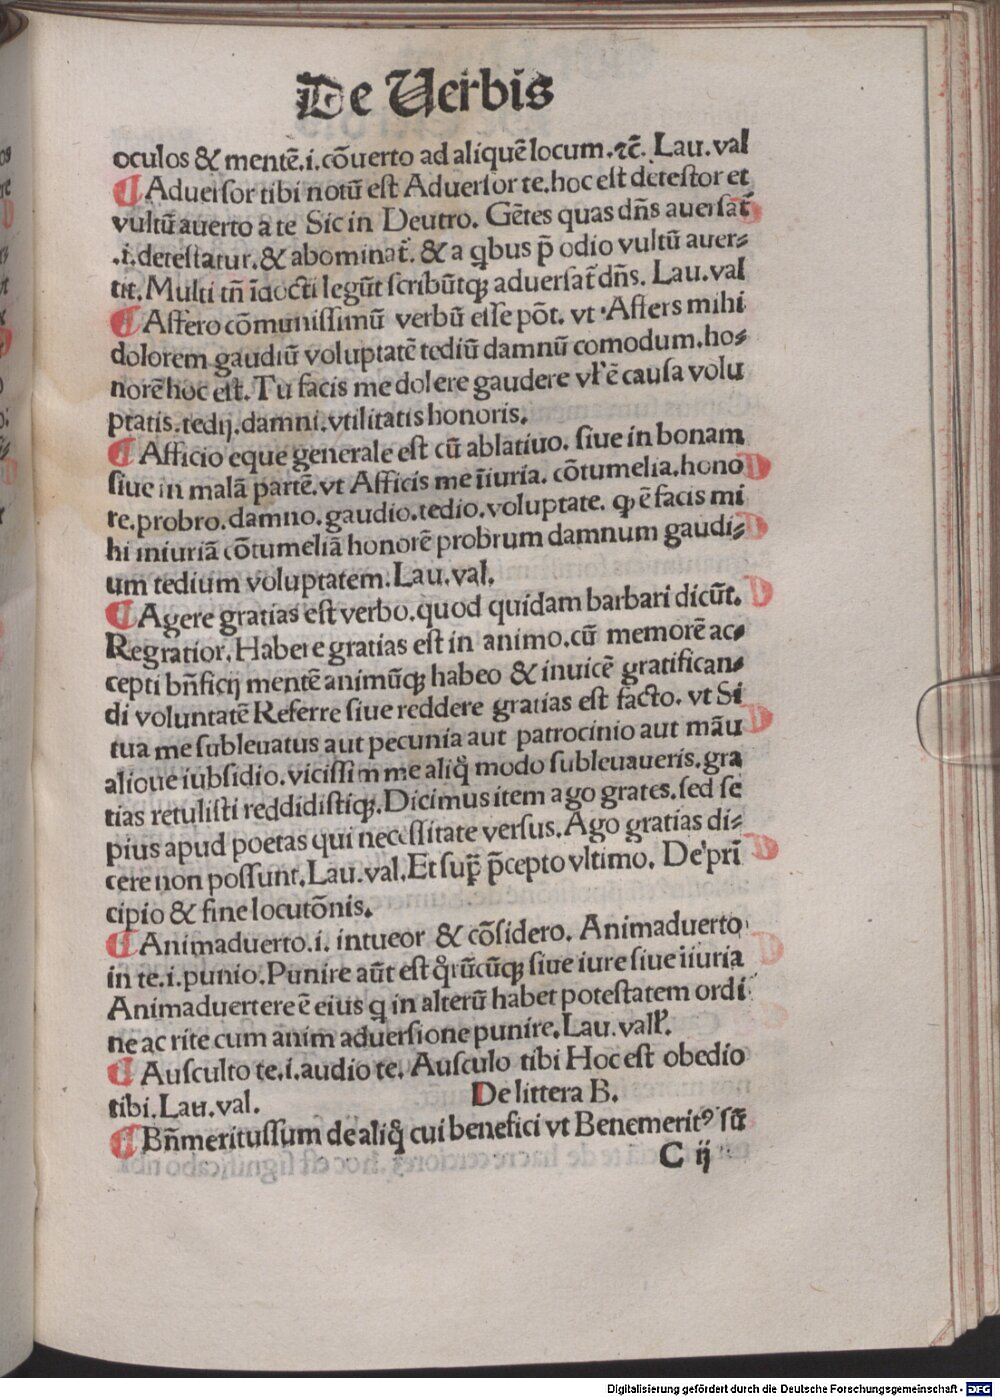 De Verbis
oculos & mentē.i. cōuerto ad aliquē locum.⁊c̄. Lau.val
¶ Aduersor tibi notū est Aduersor te.hoc est detestor et
vultū auerto a te Sic in Deutro. Gētes quas dn̄s auersat᷑
.i.detestatur.& abominat᷑. & a qbus p̄ odio vultū auer⸗
tit.Multi tn̄ īdocti legūt scribūtqꝫ aduersat᷑ dn̄s. Lau.val
¶ Affero cōmunissimū verbū esse pōt. vt Affers mihi
dolorem gaudiū voluptatē tediū damnū comodum.ho⸗
norē hoc est. Tu facis me dolere gaudere vl᷑ ē causa volu
ptatis.tedij.damni.vtilitatis honoris.
¶ Afficio eque generale est cū ablatiuo. siue in bonam
siue in malā partē.vt Afficis me īiuria. cōtumelia.hono
re.probro.damno.gaudio.tedio.voluptate. ꝙ ē facis mi
hi iniuriā cōtumeliā honorē probrum damnum gaudi⸗
um tedium voluptatem.Lau.val.
¶ Agere gratias est verbo.quod quidam barbari dicūt.
Regratior.Habere gratias est in animo.cū memorē ac⸗
cepti bn̄ficij mentē animūqꝫ habeo & inuicē gratifican⸗
di voluntatē Referre siue reddere gratias est facto. vt Si
tua me subleuatus aut pecunia aut patrocinio aut māu
alioue subsidio.vicissim me aliq̊ modo subleuaueris.gra
tias retulisti reddidistiqꝫ.Dicimus item ago grates.sed se
pius apud poetas qui necessitate versus.Ago gratias di⸗
cere non possunt.Lau.val.Et sup̄ p̄cepto vltimo. De pri̅
cipio & fine locutōnis.
¶ Animaduerto.i. intueor & cōsidero. Animaduerto
in te.i.punio.Punire aūt est q̊rūcūqꝫ siue iure siue īiuria
Animaduertere ē eius q in alterū habet potestatem ordi
ne ac rite cum anim aduersione punire.Lau.vall᷑.
¶ Ausculto te.i.audio te. Ausculo tibi Hoc est obedio
tibi.Lau.val. De littera B.
¶ Bn̄meritussum de aliq̊ cui benefici vt Benemeritꝰ sū
C ij
Digitalisierung gefördert durch die Deutsche Forschungsgemeinschaft - DFG